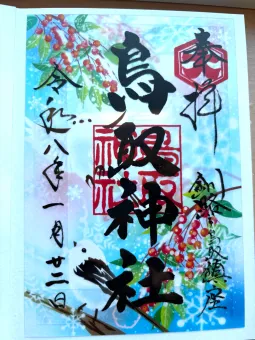 奉拝
鳥取神社
令和八年一月廿二日